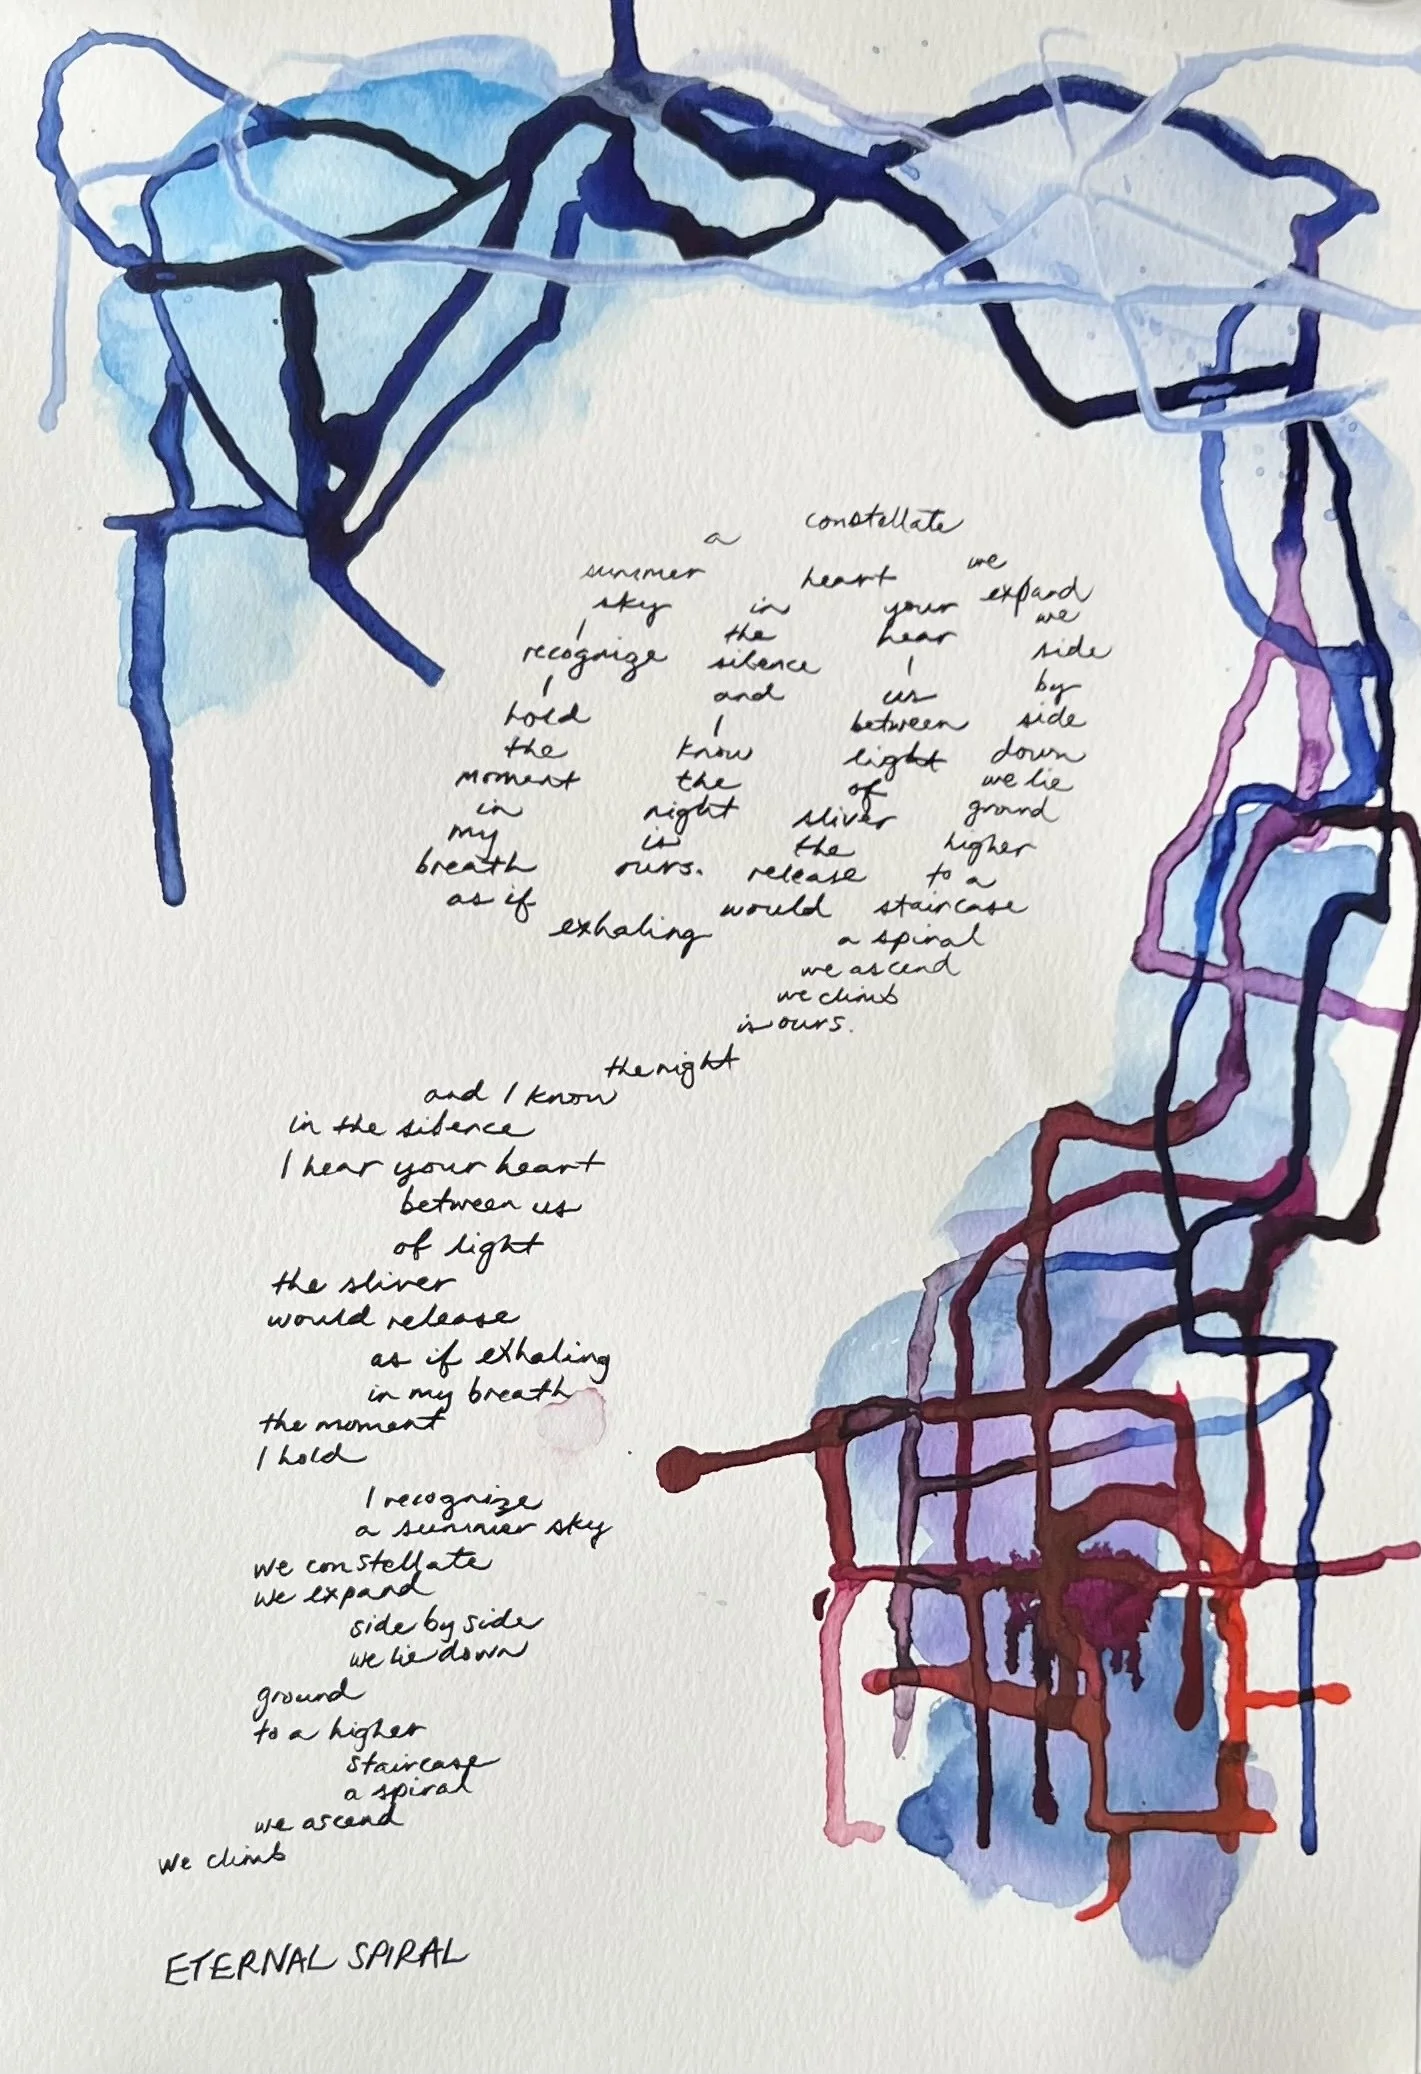 a constellate
summer heart we
sky in your expand
I the hear we
recognize silence I side
I and us by
hold I between side
the know light down
moment the of we lie
in night sliver ground
my is the higher
breath ours. release to a
as if would staircase
exhaling a spiral
we ascend
we climb
is ours.
the night
and I know
in the silence
I hear your heart
between us
of light
the sliver
would release
as if exhaling
in my breath
the moment
I hold
I recognize
a summer sky
we constellate
we expand
side by side
we lie down
ground
to a higher
staircase
a spiral
we ascend
we climb
ETERNAL SPIRAL